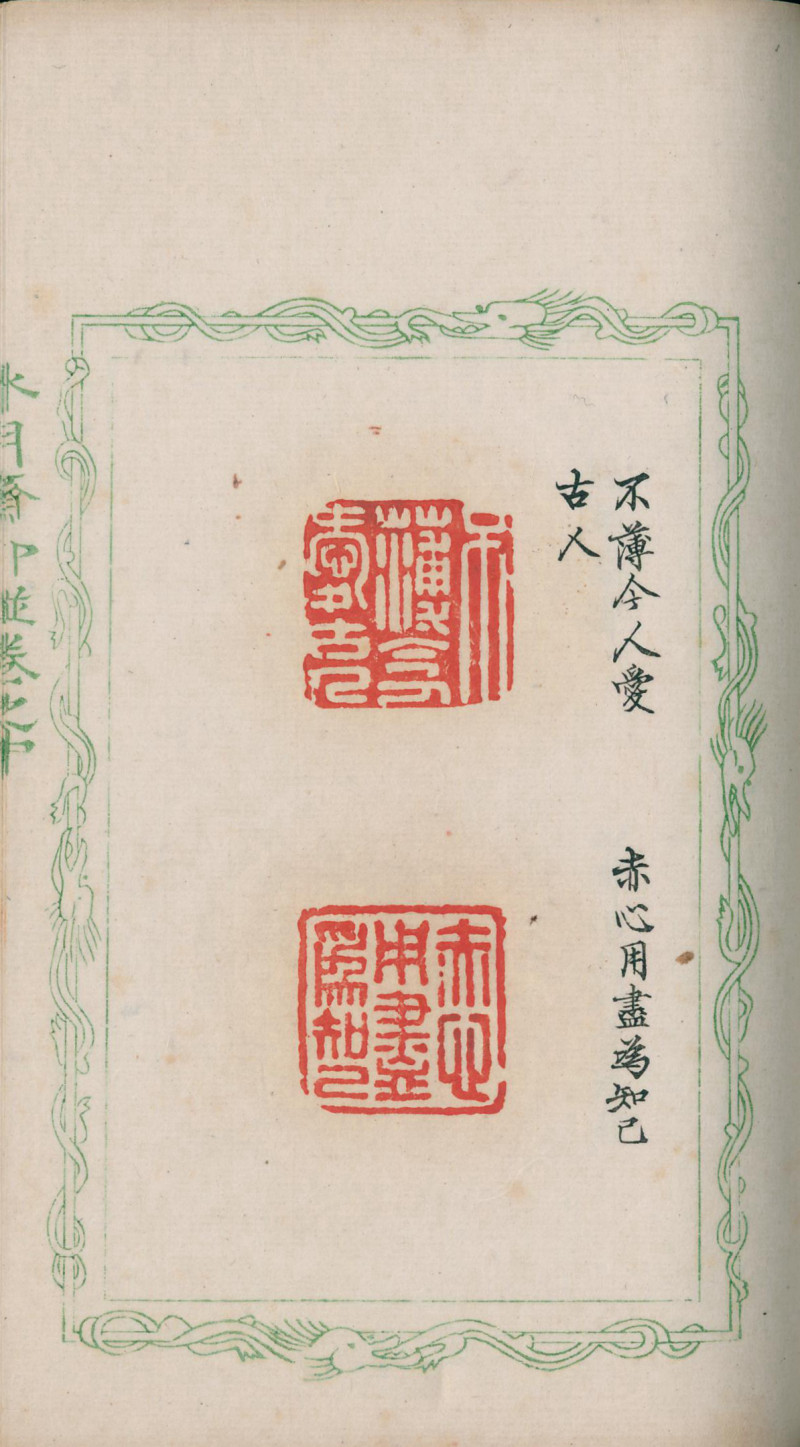 不薄今人愛
古人
赤心用盡為知己
不薄今人愛古人
赤心用盡為知己